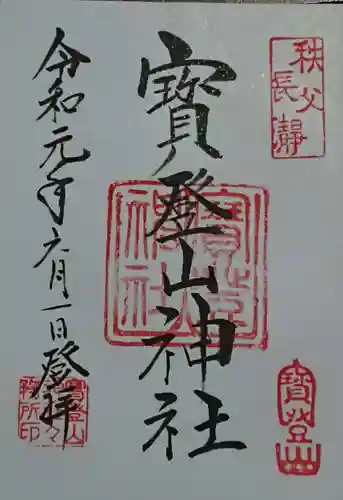 秩父
長瀞
寳登山神社
寳登山
神社
寳登山
令和元年六月一日登拝
寳登山
務所印